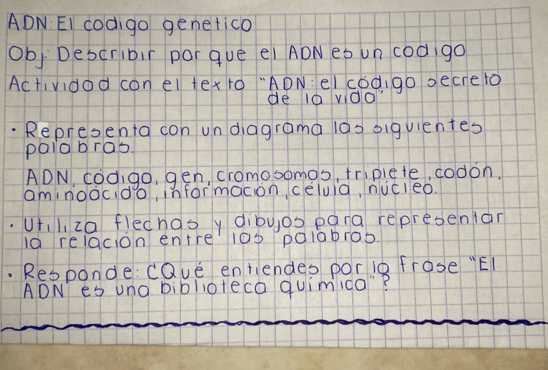 ADN: El codigo genetico
Obj: Describir por que el ADN es un codigo
Actividad con el texto "ADN: el código secreto
de la vida"
· Representa con un diagrama las siguientes
palabras.
ADN, código, gen, cromosomas, triplete, codón,
aminoácido, información, célula, núcleo.
· Utiliza flechas y dibujos para representar
la relación entre las palabras.
· Responde: ¿Qué entiendes por la frase "El
ADN es una biblioteca química"?